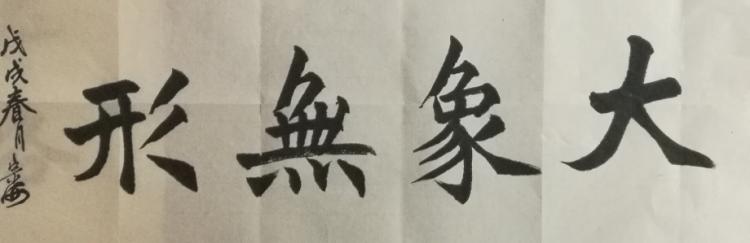 大象無形
戊戌春月